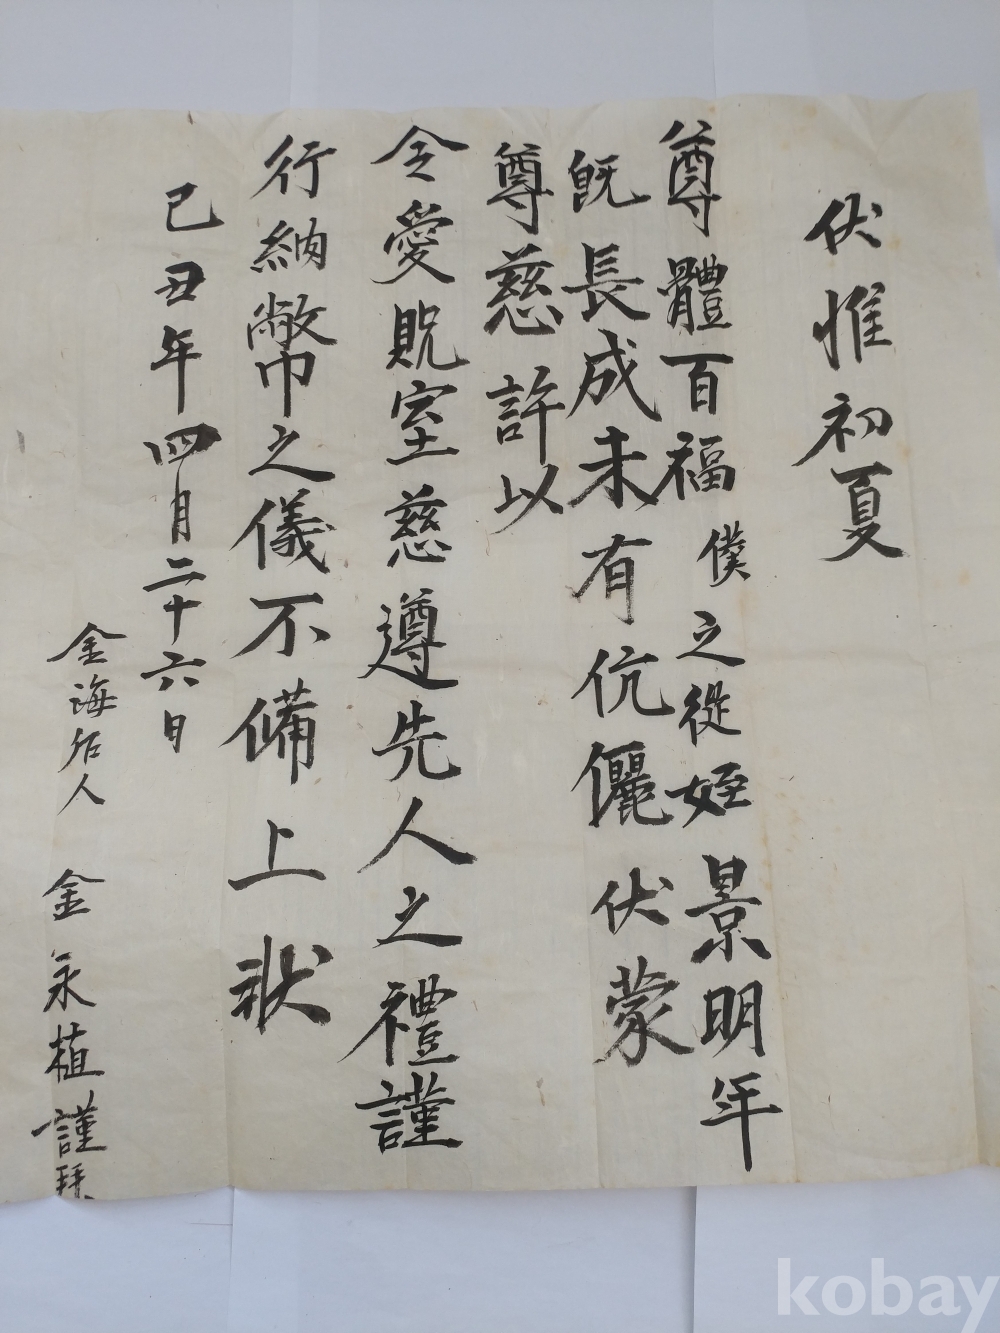 伏惟初夏
尊體百福僕之從姪景明年
旣長成未有伉儷伏蒙
尊慈許以
令愛貺室玆遵先人之禮謹
行納幣之儀不備上狀
己丑年四月二十六日
金海后人 金永植謹拜
kobay